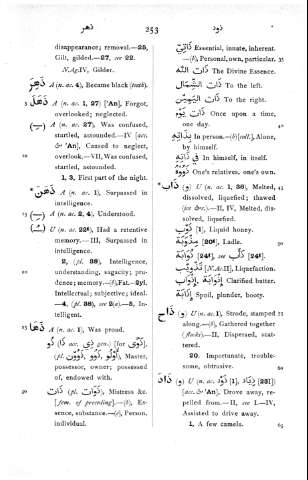 ذهر 253 ذود
disappearance; removal.—23,
Gilt, gilded.—27, see 22.
N.Ag.IV, Gilder.
ذَهِرَ A (n. ac. 4), Became black (teeth).
5 ذَهَلَ A (n. ac. 1, 27) ['An], Forgot,
overlooked; neglected.
(—) A (n. ac. 27), Was confused,
startled, astounded.—IV [acc.
& 'An], Caused to neglect,
10 overlook.—VII, Was confused,
startled, astounded.
1, 3, First part of the night.
ذَهَنَ A (n. ac. 1), Surpassed in
intelligence.
15 (—) A (n. ac. 2, 4), Understood.
(—) U (n. ac. 22t), Had a retentive
memory.—III, Surpassed in
intelligence.
2, (pl. 38), Intelligence,
20 understanding, sagacity; pru-
dence; memory.—(b), Fat.—2yI,
Intellectual; subjective; ideal.
—4, (pl. 38), see 2(a).—5, In-
telligent.
25 ذَهَا A (n. ac. 1), Was proud.
ذُو (acc. ذَا, gen. ذِي) [for ذَوَىٌ],
(pl. ذَوُونَ, أُولُو), Master,
possessor, owner; possessed
of, endowed with.
30 ذَات (pl. ذَوَات), Mistress &c.
[fem. of preceding].—(b), Es-
sence, substance.—(c), Person,
individual.
ذَاتِيّ Essential, innate, inherent.
—(b), Personal, own, particular. 35
ذَات اللّٰه The Divine Essence.
ذَات الشِّمَال To the left.
ذَات الْيَمِيْن To the right.
ذَات يَوْم Once upon a time,
one day. 40
بِذَاتِهِ In person.—(b) [coll.], Alone,
by himself.
فِي ذَاتِهِ In himself, in itself.
ذَوُوهُ One's relatives, one's own.
ذَابَ (و) U (n. ac. 1, 36), Melted, 45
dissolved, liquefied; thawed
(ice &c.).—II, IV, Melted, dis-
solved, liquefied.
ذَوْب [1], Liquid honey.
مِذْوَبَة [20t], Ladle. 50
ذُوَابَة [24t], see ذُؤَابَة [24t].
تَذْوِيْب [N.Ac.II], Liquefaction.
إِذْوَابَة Clarified butter.
إِذَابَة Spoil, plunder, booty.
ذَاحَ (و) U (n. ac. 1), Strode, stamped 55
along.—(b), Gathered together
(flocks).—II, Dispersed, scat-
tered.
20, Importunate, trouble-
some, obtrusive. 60
ذَادَ (و) U (n. ac. ذَوْد [1], ذِيَاد [23I])
[acc. & 'An], Drove away, re-
pelled from.—II, see I.—IV,
Assisted to drive away.
1, A few camels. 65